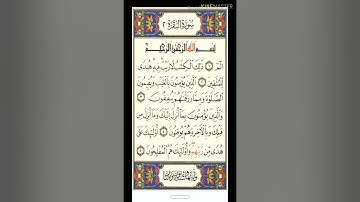 KINEMASTER
سُورَةُ الْبَقَرَةِ ٢
بِسْمِ اللَّهِ الرَّحْمَٰنِ الرَّحِيمِ
الٓمٓ ١ ذَٰلِكَ الْكِتَٰبُ لَا رَيْبَ فِيهِ هُدًى
لِلْمُتَّقِينَ ٢ الَّذِينَ يُؤْمِنُونَ بِالْغَيْبِ وَيُقِيمُونَ
الصَّلَوٰةَ وَمِمَّا رَزَقْنَٰهُمْ يُنْفِقُونَ ٣
وَالَّذِينَ يُؤْمِنُونَ بِمَا أُنْزِلَ إِلَيْكَ وَمَا أُنْزِلَ مِنْ
قَبْلِكَ وَبِالْآخِرَةِ هُمْ يُوقِنُونَ ٤ أُولَٰئِكَ عَلَىٰ
هُدًى مِنْ رَبِّهِمْ وَأُولَٰئِكَ هُمُ الْمُفْلِحُونَ ٥